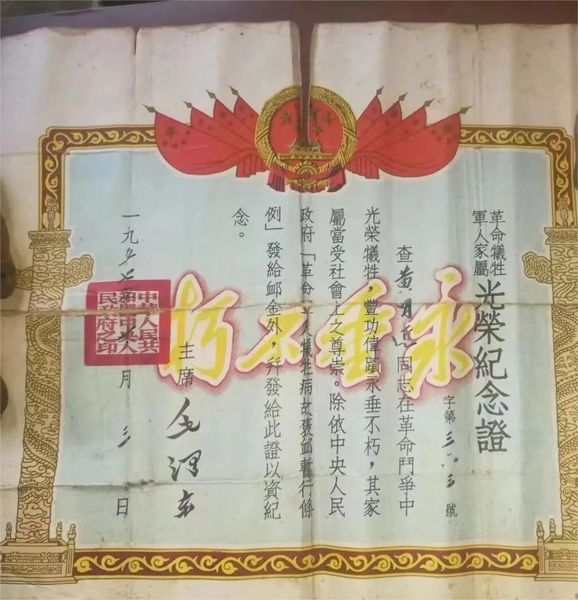 革命犧牲
軍人家屬
光榮紀念證
字第三八三號
查黃明同志在革命鬥爭中
光榮犧牲，豐功偉蹟永垂不朽，其家
屬當受社會上之尊崇。除依中央人民
政府「革命人犧牲病故褒卹暫行條
例」發給卹金外，并發給此證以資紀
念。
永垂不朽
主席 毛澤东
一九五年月三日
中華人民共
和國中央人
民政府之印